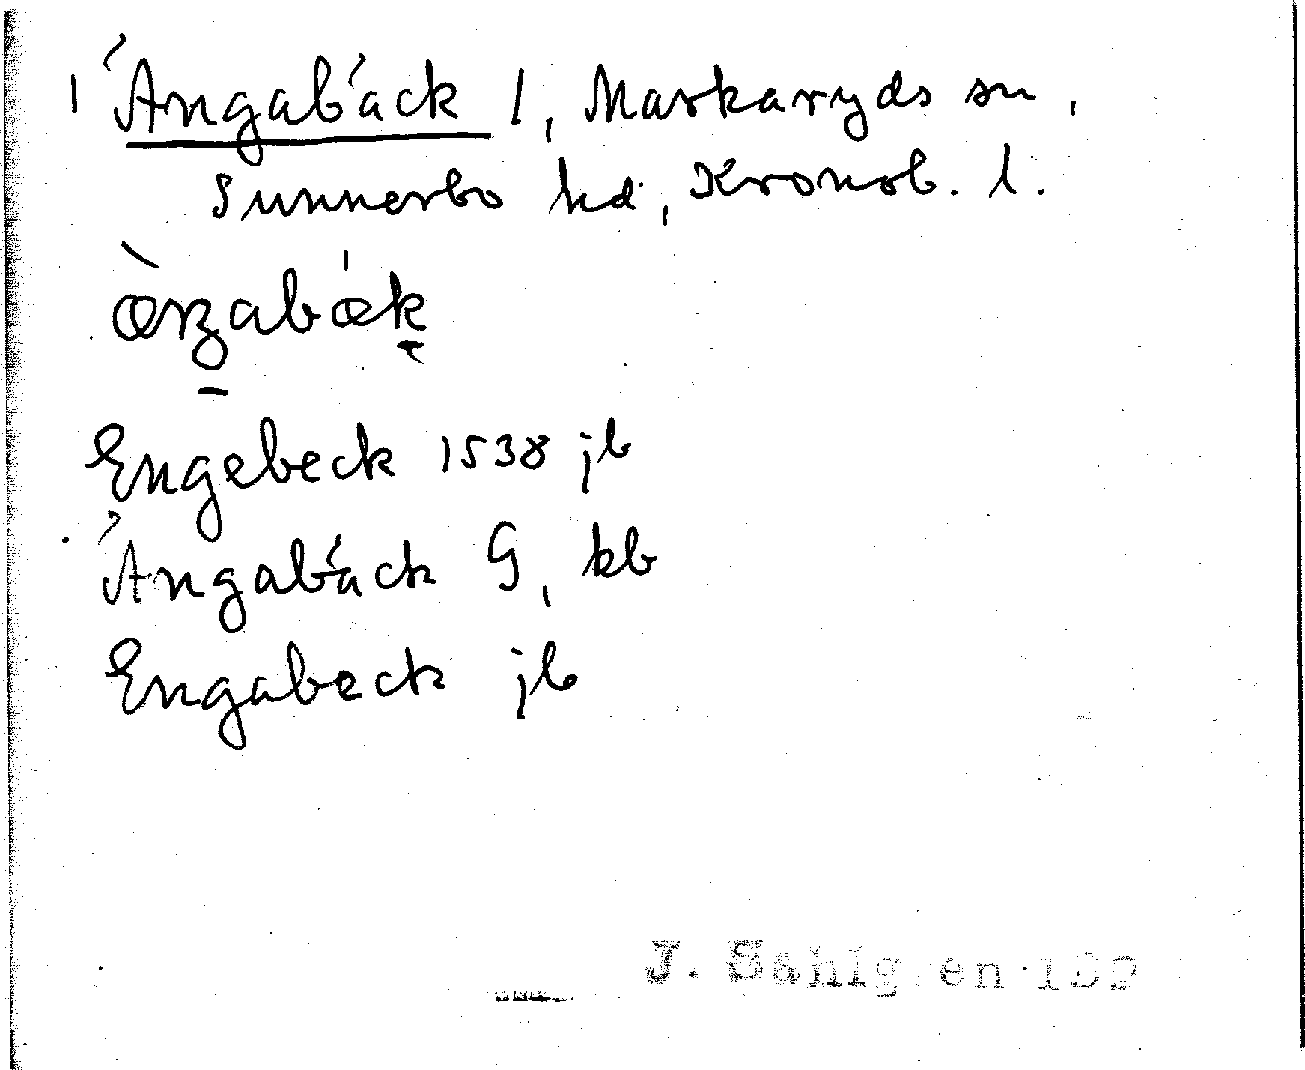 Ängabäck /, Markaryds sn,
Sunnerbo hd, Kronob. l.
æ̀ŋabǽk
Engebeck 1538 jb
Ängabäck G, kb
Engabeck jb
J. Sahlg en